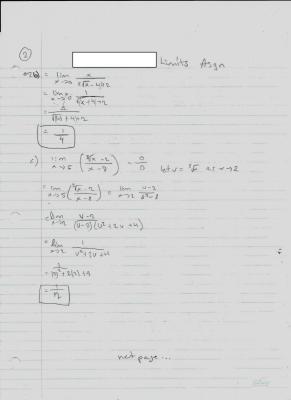 ②
Limits Asgn
= lim x→0 x / √(x+4)+2
= lim x→0 1 / √(x+4)+2
= 1 / √(0+4)+2
= 1/4
c) lim x→8 (∛x - 2 / x - 8) = 0/0 let u = ∛x as u→2
= lim x→8 (∛x - 2 / x - 8) = lim u→2 u-2 / u³-8
= lim u→2 u-2 / (u-2)(u²+2u+4)
= lim u→2 1 / u²+2u+4
= 1 / (2)²+2(2)+4
= 1/12
next page...